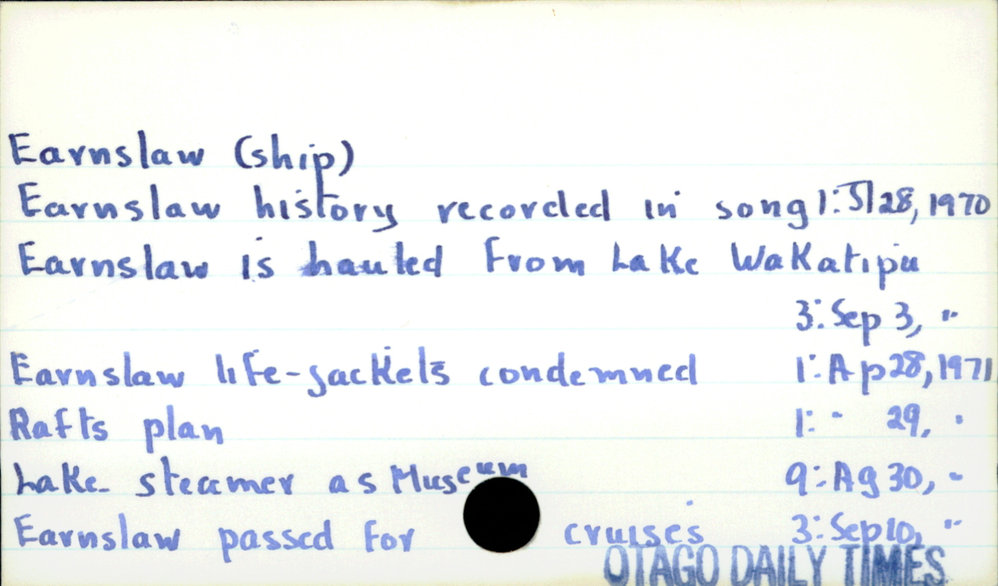 Earnslaw (ship)
Earnslaw history recorded in song 1: Jl 28, 1970
Earnslaw is hauled from Lake Wakatipu
3: Sep 3, "
Earnslaw life-jackets condemned 1: Ap 28, 1971
Rafts plan 1: " 29, "
Lake steamer as Museum 9: Ag 30, "
Earnslaw passed for cruises 3: Sep 10, "
OTAGO DAILY TIMES